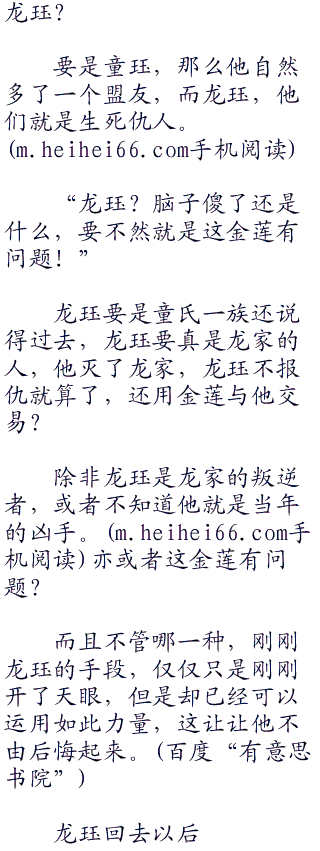 龙珏？
要是童珏，那么他自然
多了一个盟友，而龙珏，他
们就是生死仇人。
(m.heihei66.com手机阅读)
“龙珏？脑子傻了还是
什么，要不然就是这金莲有
问题！”
龙珏要是童氏一族还说
得过去，龙珏要真是龙家的
人，他灭了龙家，龙珏不报
仇就算了，还用金莲与他交
易？
除非龙珏是龙家的叛逆
者，或者不知道他就是当年
的凶手。(m.heihei66.com手
机阅读)亦或者这金莲有问
题？
而且不管哪一种，刚刚
龙珏的手段，仅仅只是刚刚
开了天眼，但是却已经可以
运用如此力量，这让让他不
由后悔起来。(百度“有意思
书院”)
龙珏回去以后